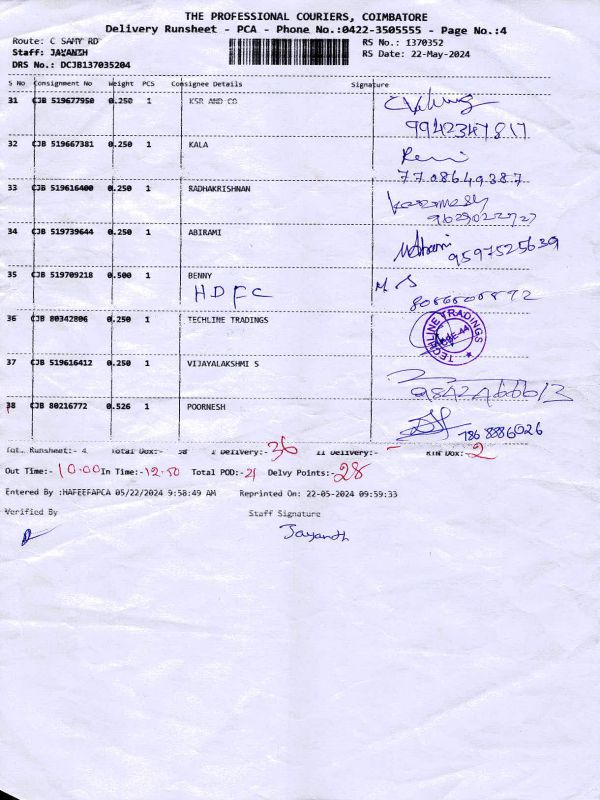 THE PROFESSIONAL COURIERS, COIMBATORE
Delivery Runsheet - PCA - Phone No.:0422-3505555 - Page No.:4
Route: C SAMY RD RS No.: 1370352
Staff: JAYANTH RS Date: 22-May-2024
DRS No.: DCJB137035204
S No Consignment No Weight PCS Consignee Details Signature
31 CJB 519677950 0.250 1 KSR AND CO
9942347817
32 CJB 519667381 0.250 1 KALA
7708649387
33 CJB 519616400 0.250 1 RADHAKRISHNAN
34 CJB 519739644 0.250 1 ABIRAMI
9597525639
35 CJB 519709218 0.500 1 BENNY
HDFC
36 CJB 80342806 0.250 1 TECHLINE TRADINGS
TECHLINE TRADINGS
37 CJB 519616412 0.250 1 VIJAYALAKSHMI S
38 CJB 80216772 0.526 1 POORNESH
Tot. Runsheet:- 4 Total Dox:- 38 Delivery:- 36 Delivery:- - Dox:- 2
Out Time:- 10.00 In Time:- 12.50 Total POD:- 21 Delvy Points:- 28
Entered By :HAFEEFAPCA 05/22/2024 9:58:49 AM Reprinted On: 22-05-2024 09:59:33
Verified By Staff Signature
Jayandh